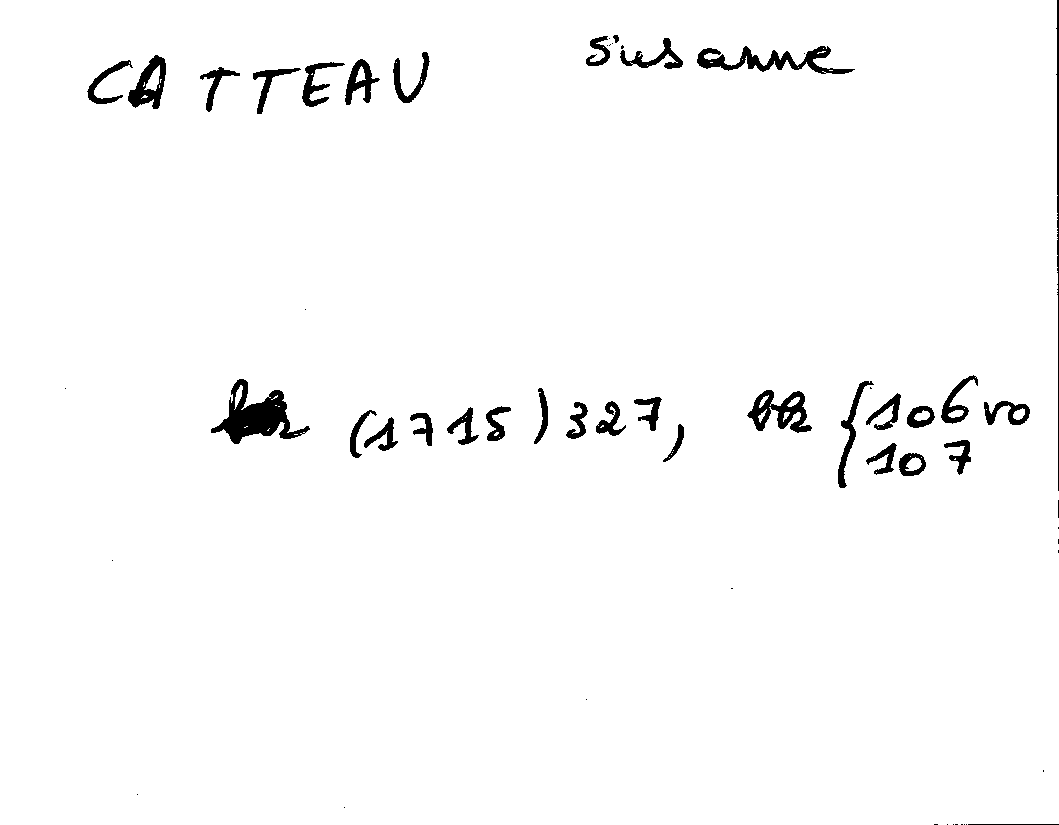 CATTEAU Susanne
(1715) 327, { 106 ro
107